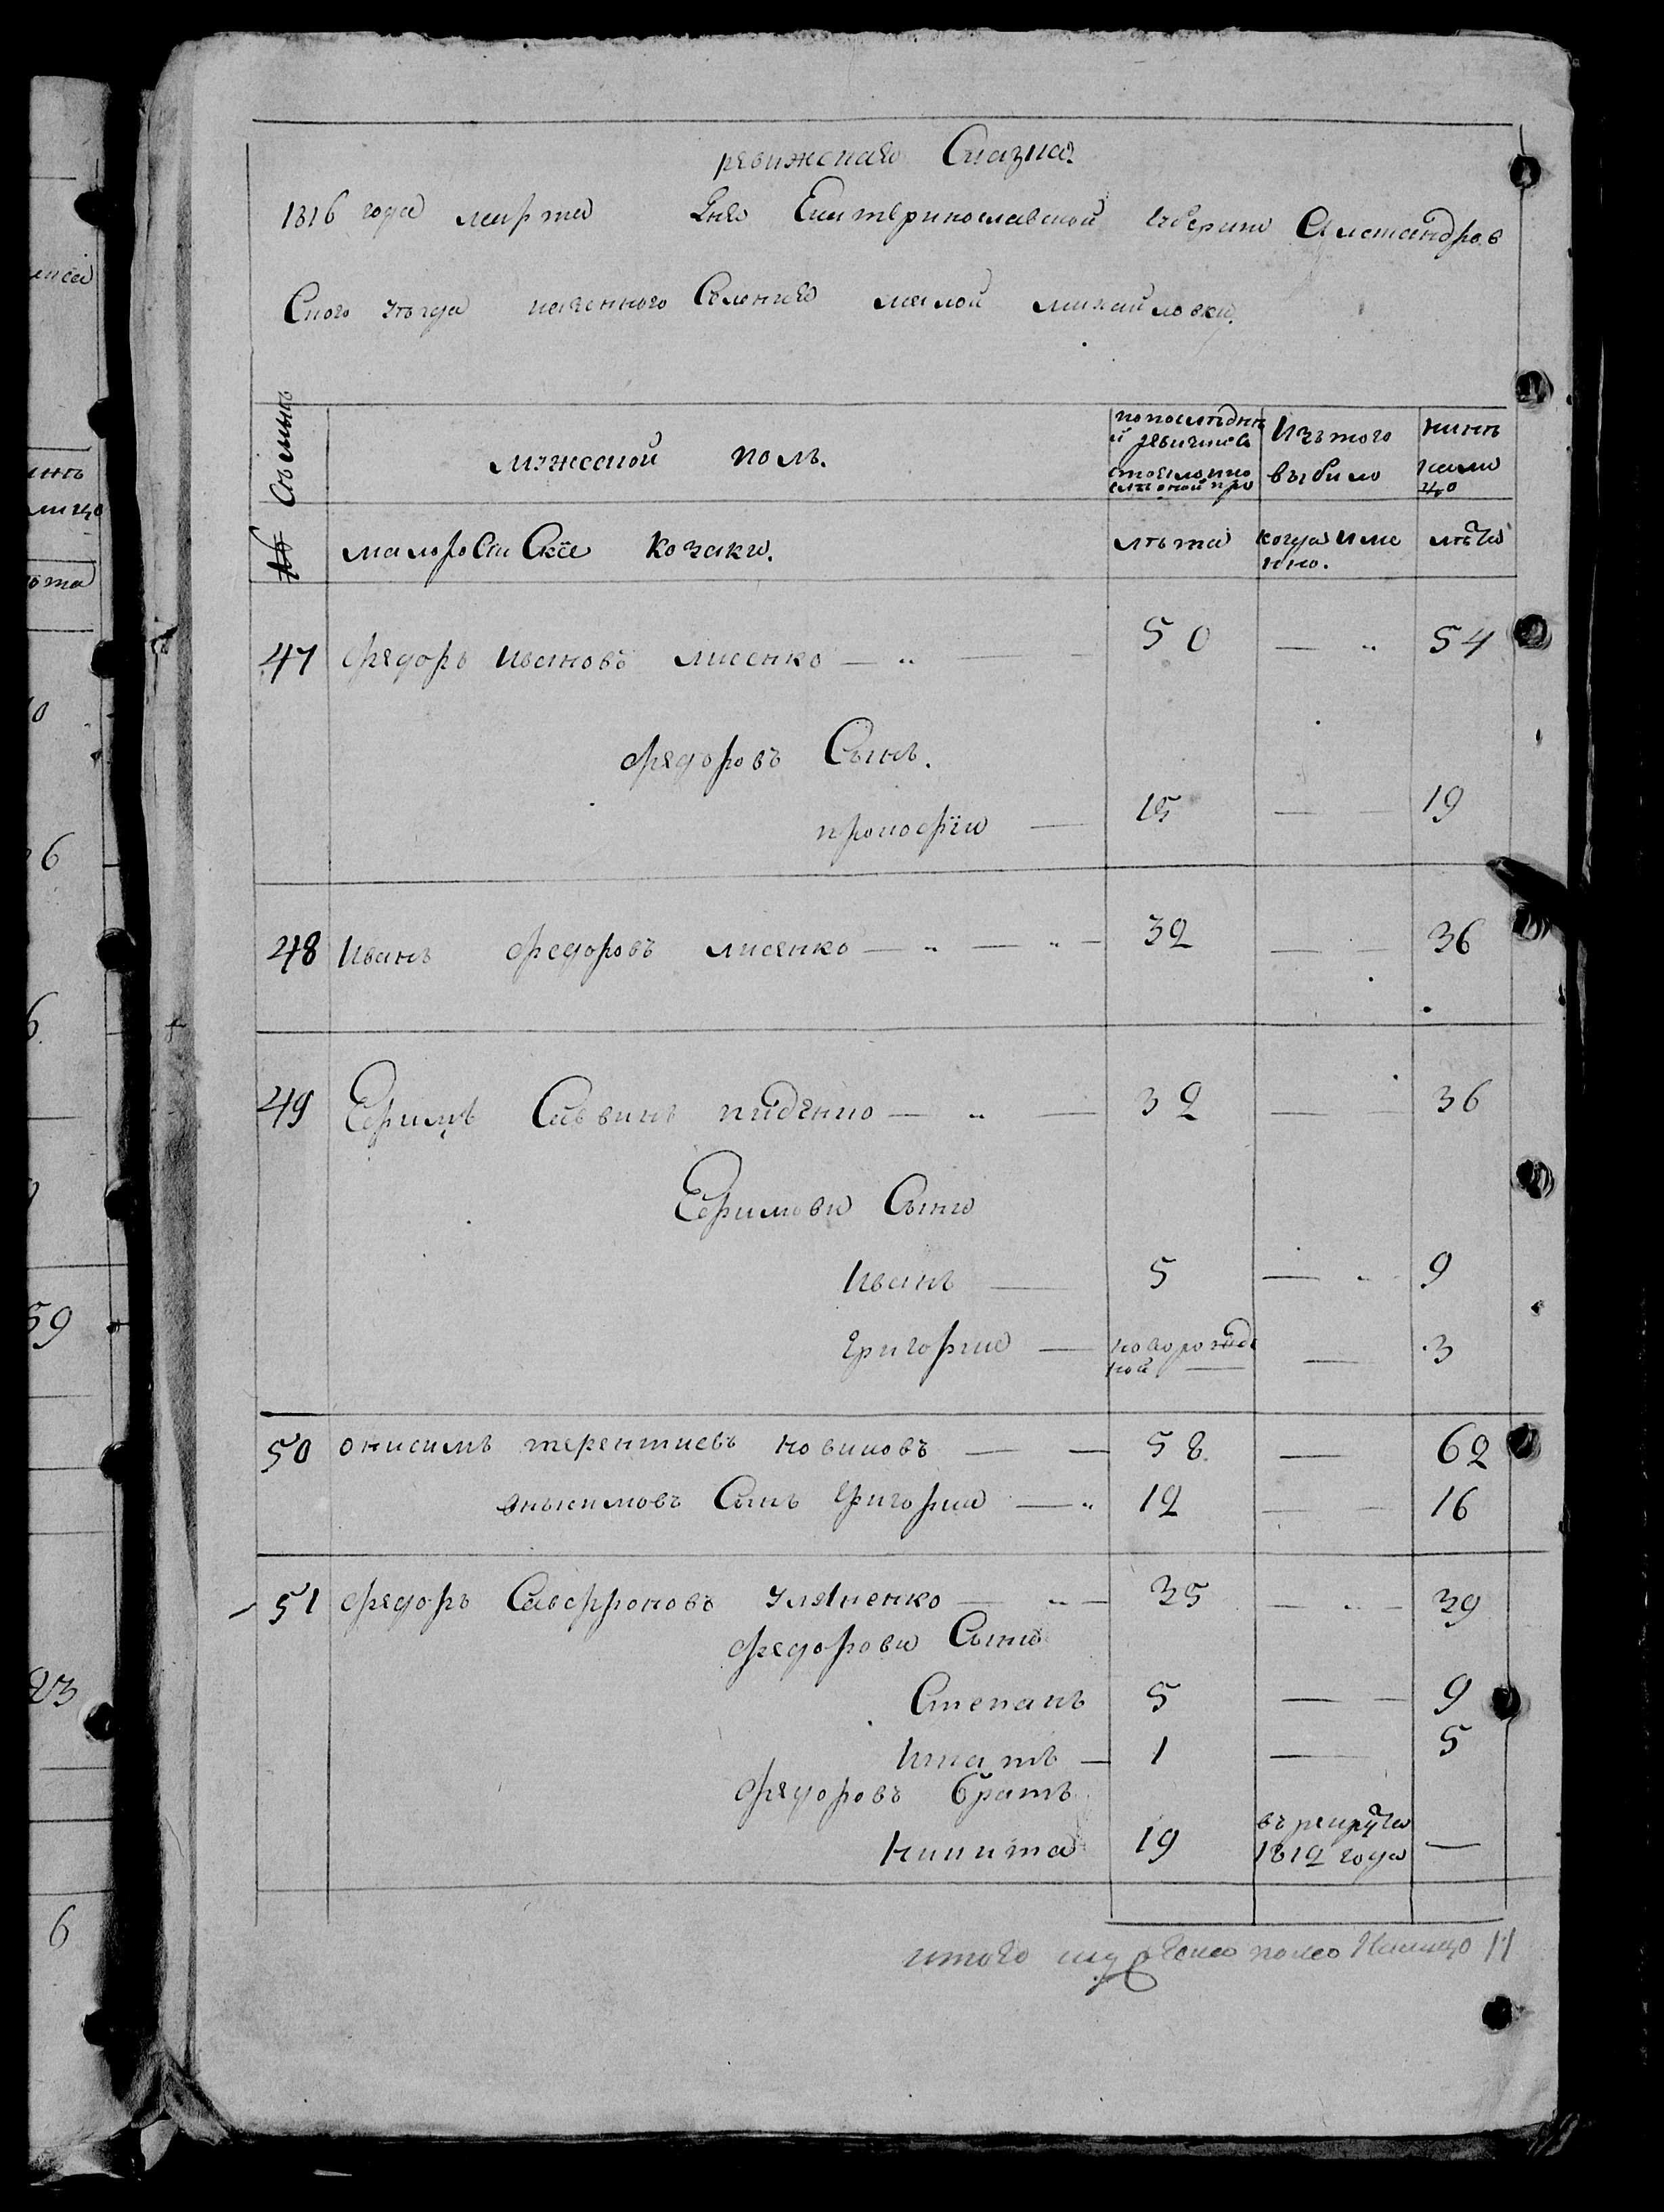 ревижская Сказка
1816 года марта дня Екатеринославской губерни Александров
Ского уѣзда казенного Селения малой михайловки.
Семьи
мужеской полъ.
попоследнѣ
й ревизиис
состояло ипо
слѣ оной при
Изътого
выбило
нинѣ
нали
цо
№
малороСіи Скіе козаки.
лѣта
когда име
нно.
лѣта
47 федоръ ивановъ лисенко — „ — 50 — „ 54
федоровъ Сынъ.
прокофіи — 15 — 19
48 Иванъ федоровъ лисенко — „ — „ — 32 — 36
49 Ефимъ Саввинъ пиденко — „ — 32 — 36
Ефимови Сыни
Иванъ — 5 — „ 9
григории — новорожде
ной — — 3
50 онисимъ терентиевъ новиковъ — — 58 — 62
онисимовъ Сынъ григории — „ 12 — 16
51 федоръ Савфроновъ уляненко — „ — 35 — „ — 39
федорови Сыни
Степанъ 5 — 9
Игнатъ — 1 — 5
федоровъ братъ
никита 19 въ рекрута
1812 года —
итого мужеска пола Налицо 11
лиса
инѣ
лицо
ѣта
0
6
6
59
23
6